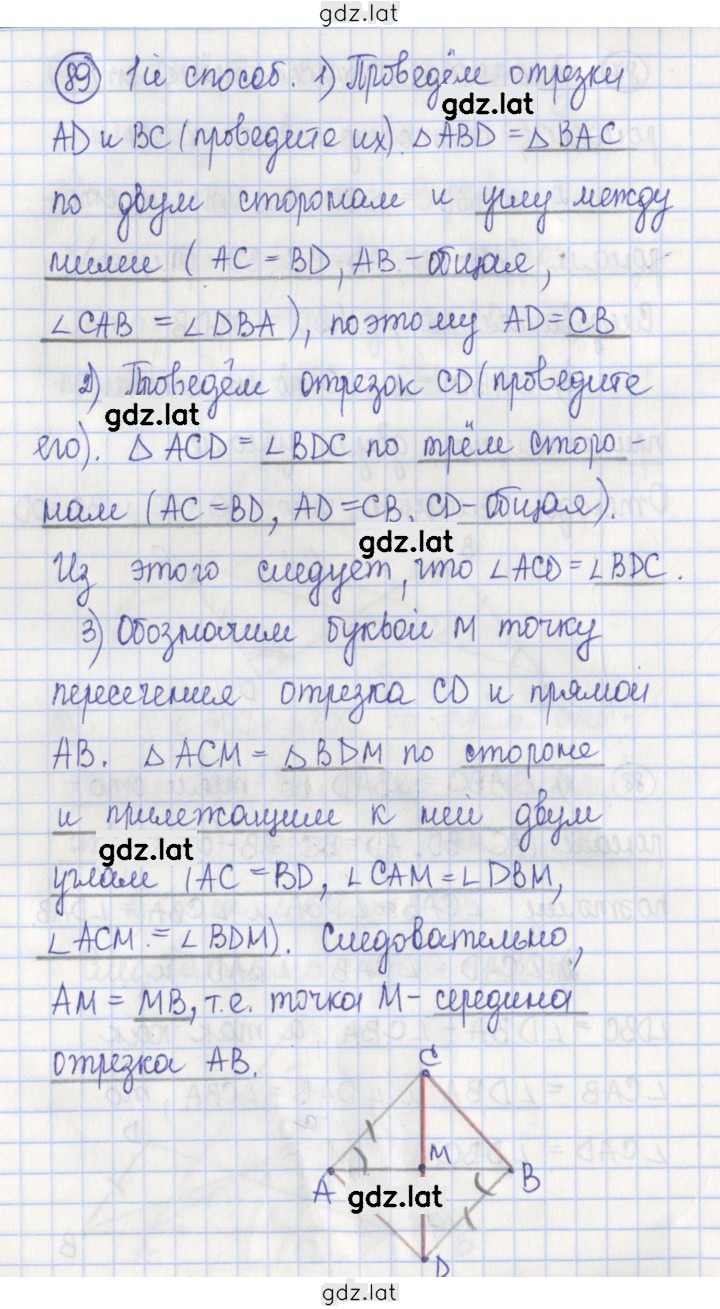 gdz.lat
89 1й способ. 1) Проведём отрезки
gdz.lat
AD и BC (проведите их). △ABD = △BAC
по двум сторонам и углу между
ними (AC = BD, AB - общая,
∠CAB = ∠DBA), поэтому AD = CB
2) Проведём отрезок CD (проведите
gdz.lat
его). △ ACD = ∠BDC по трём сторо-
нам (AC = BD, AD = CB, CD - общая).
gdz.lat
Из этого следует, что ∠ACD = ∠BDC.
3) Обозначим буквой M точку
пересечения отрезка CD и прямой
AB. △ ACM = △BDM по стороне
и прилежащим к ней двум
gdz.lat
углам (AC = BD, ∠CAM = ∠DBM,
∠ACM = ∠BDM). Следовательно,
AM = MB, т.е. точка M - середина
отрезка AB.
C
M
A
B
gdz.lat
D
gdz.lat